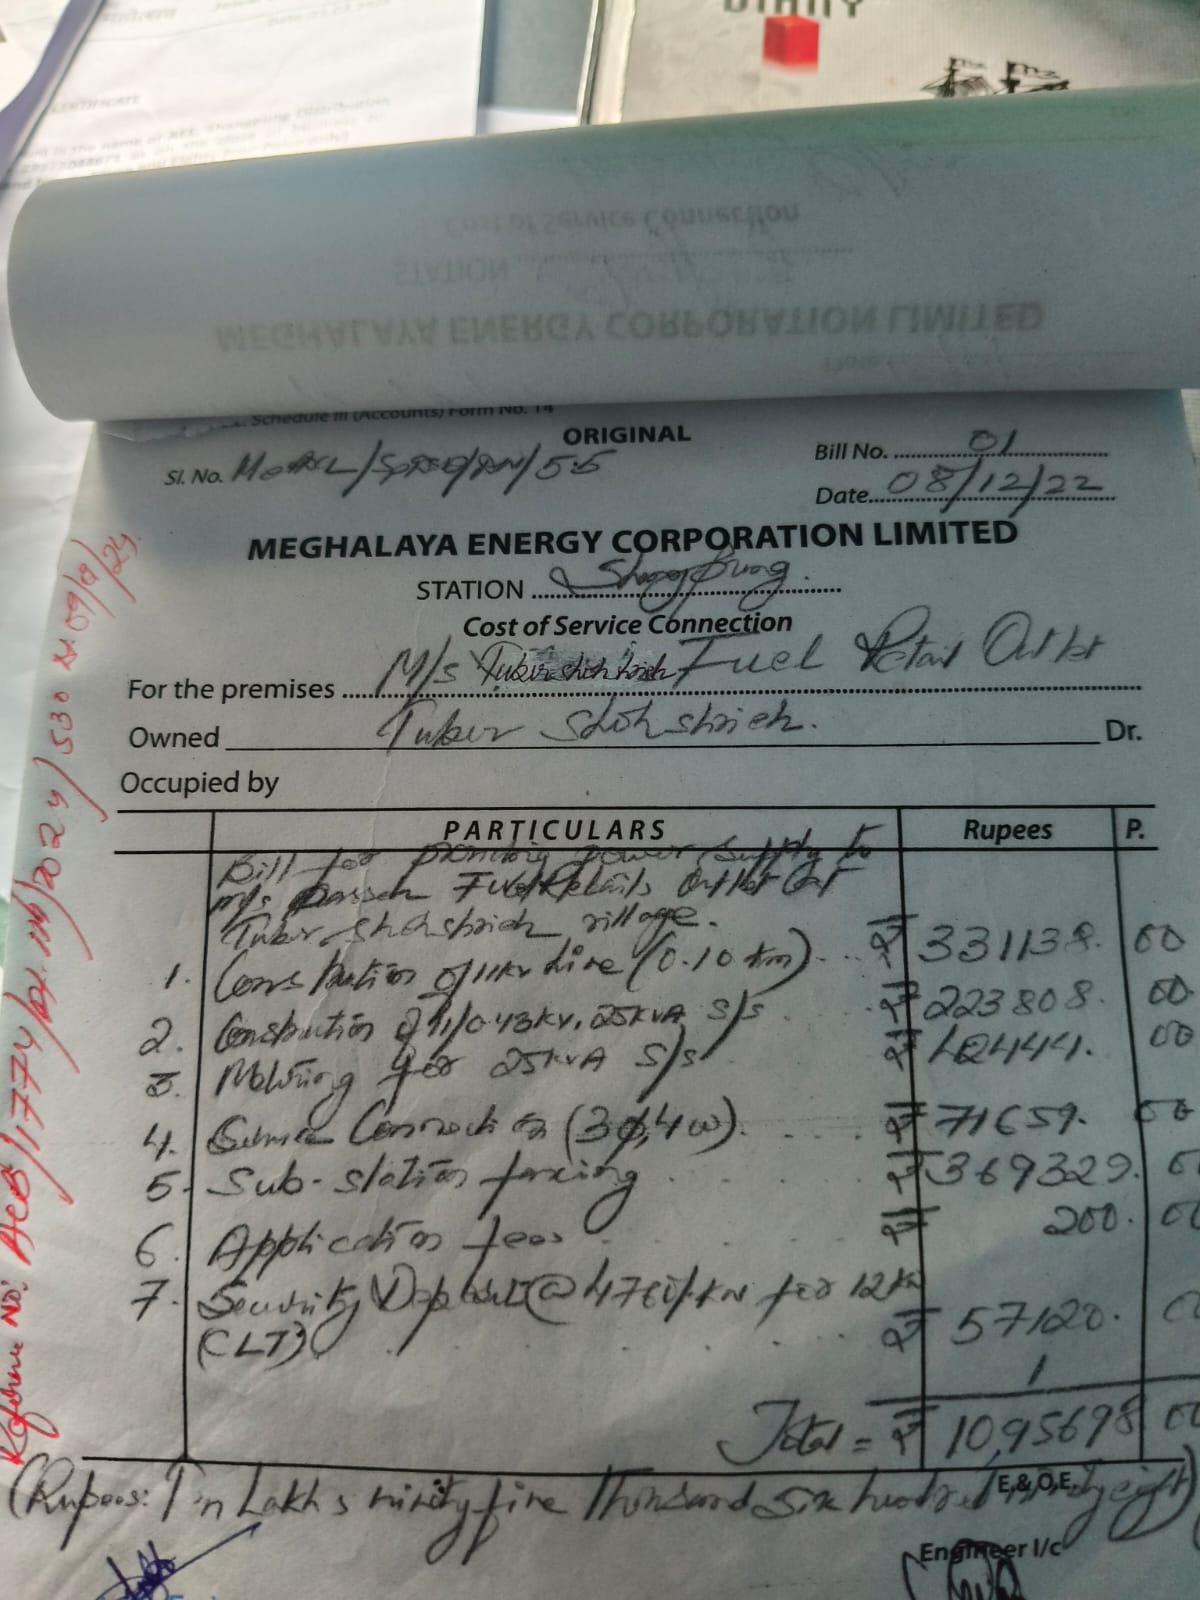 DIARY
CERTIFICATE
Cost of Service Connection
STATION
MEGHALAYA ENERGY CORPORATION LIMITED
Schedule III (Accounts) Form No. 14
ORIGINAL
Sl. No. /55
Bill No. 01
Date 08/12/22
MEGHALAYA ENERGY CORPORATION LIMITED
STATION Shangpung
Cost of Service Connection
For the premises M/s Tuber shohshrieh Fuel Retail Outlet
Owned Tuber Shohshrieh. Dr.
Occupied by
PARTICULARS Rupees P.
Bill for providing power supply to
M/s Fuel Retails Outlet at
Tuber Shohshrieh village.
1. Construction of 11kv line (0.10 km). ₹ 331138. 00
2. Construction of 11/0.43kv, 25kVA S/s ₹ 223808. 00
3. Metering for 25kVA S/s ₹ 42444. 00
4. Service Connection (3φ,4w). ₹ 71659. 00
5. Sub-station fencing ₹ 369329. 00
6. Application fees ₹ 200. 00
7. Security Deposit @ 4760/kw for 12kw
(CLT) ₹ 57120. 00
Total = ₹ 1095698 00
(Rupees: Ten Lakhs ninety five thousand six hundred ninety eight)
E.&O.E.
Engineer I/c
Reference No: ACB/1774/ /2024/530 dt. 09/9/24.